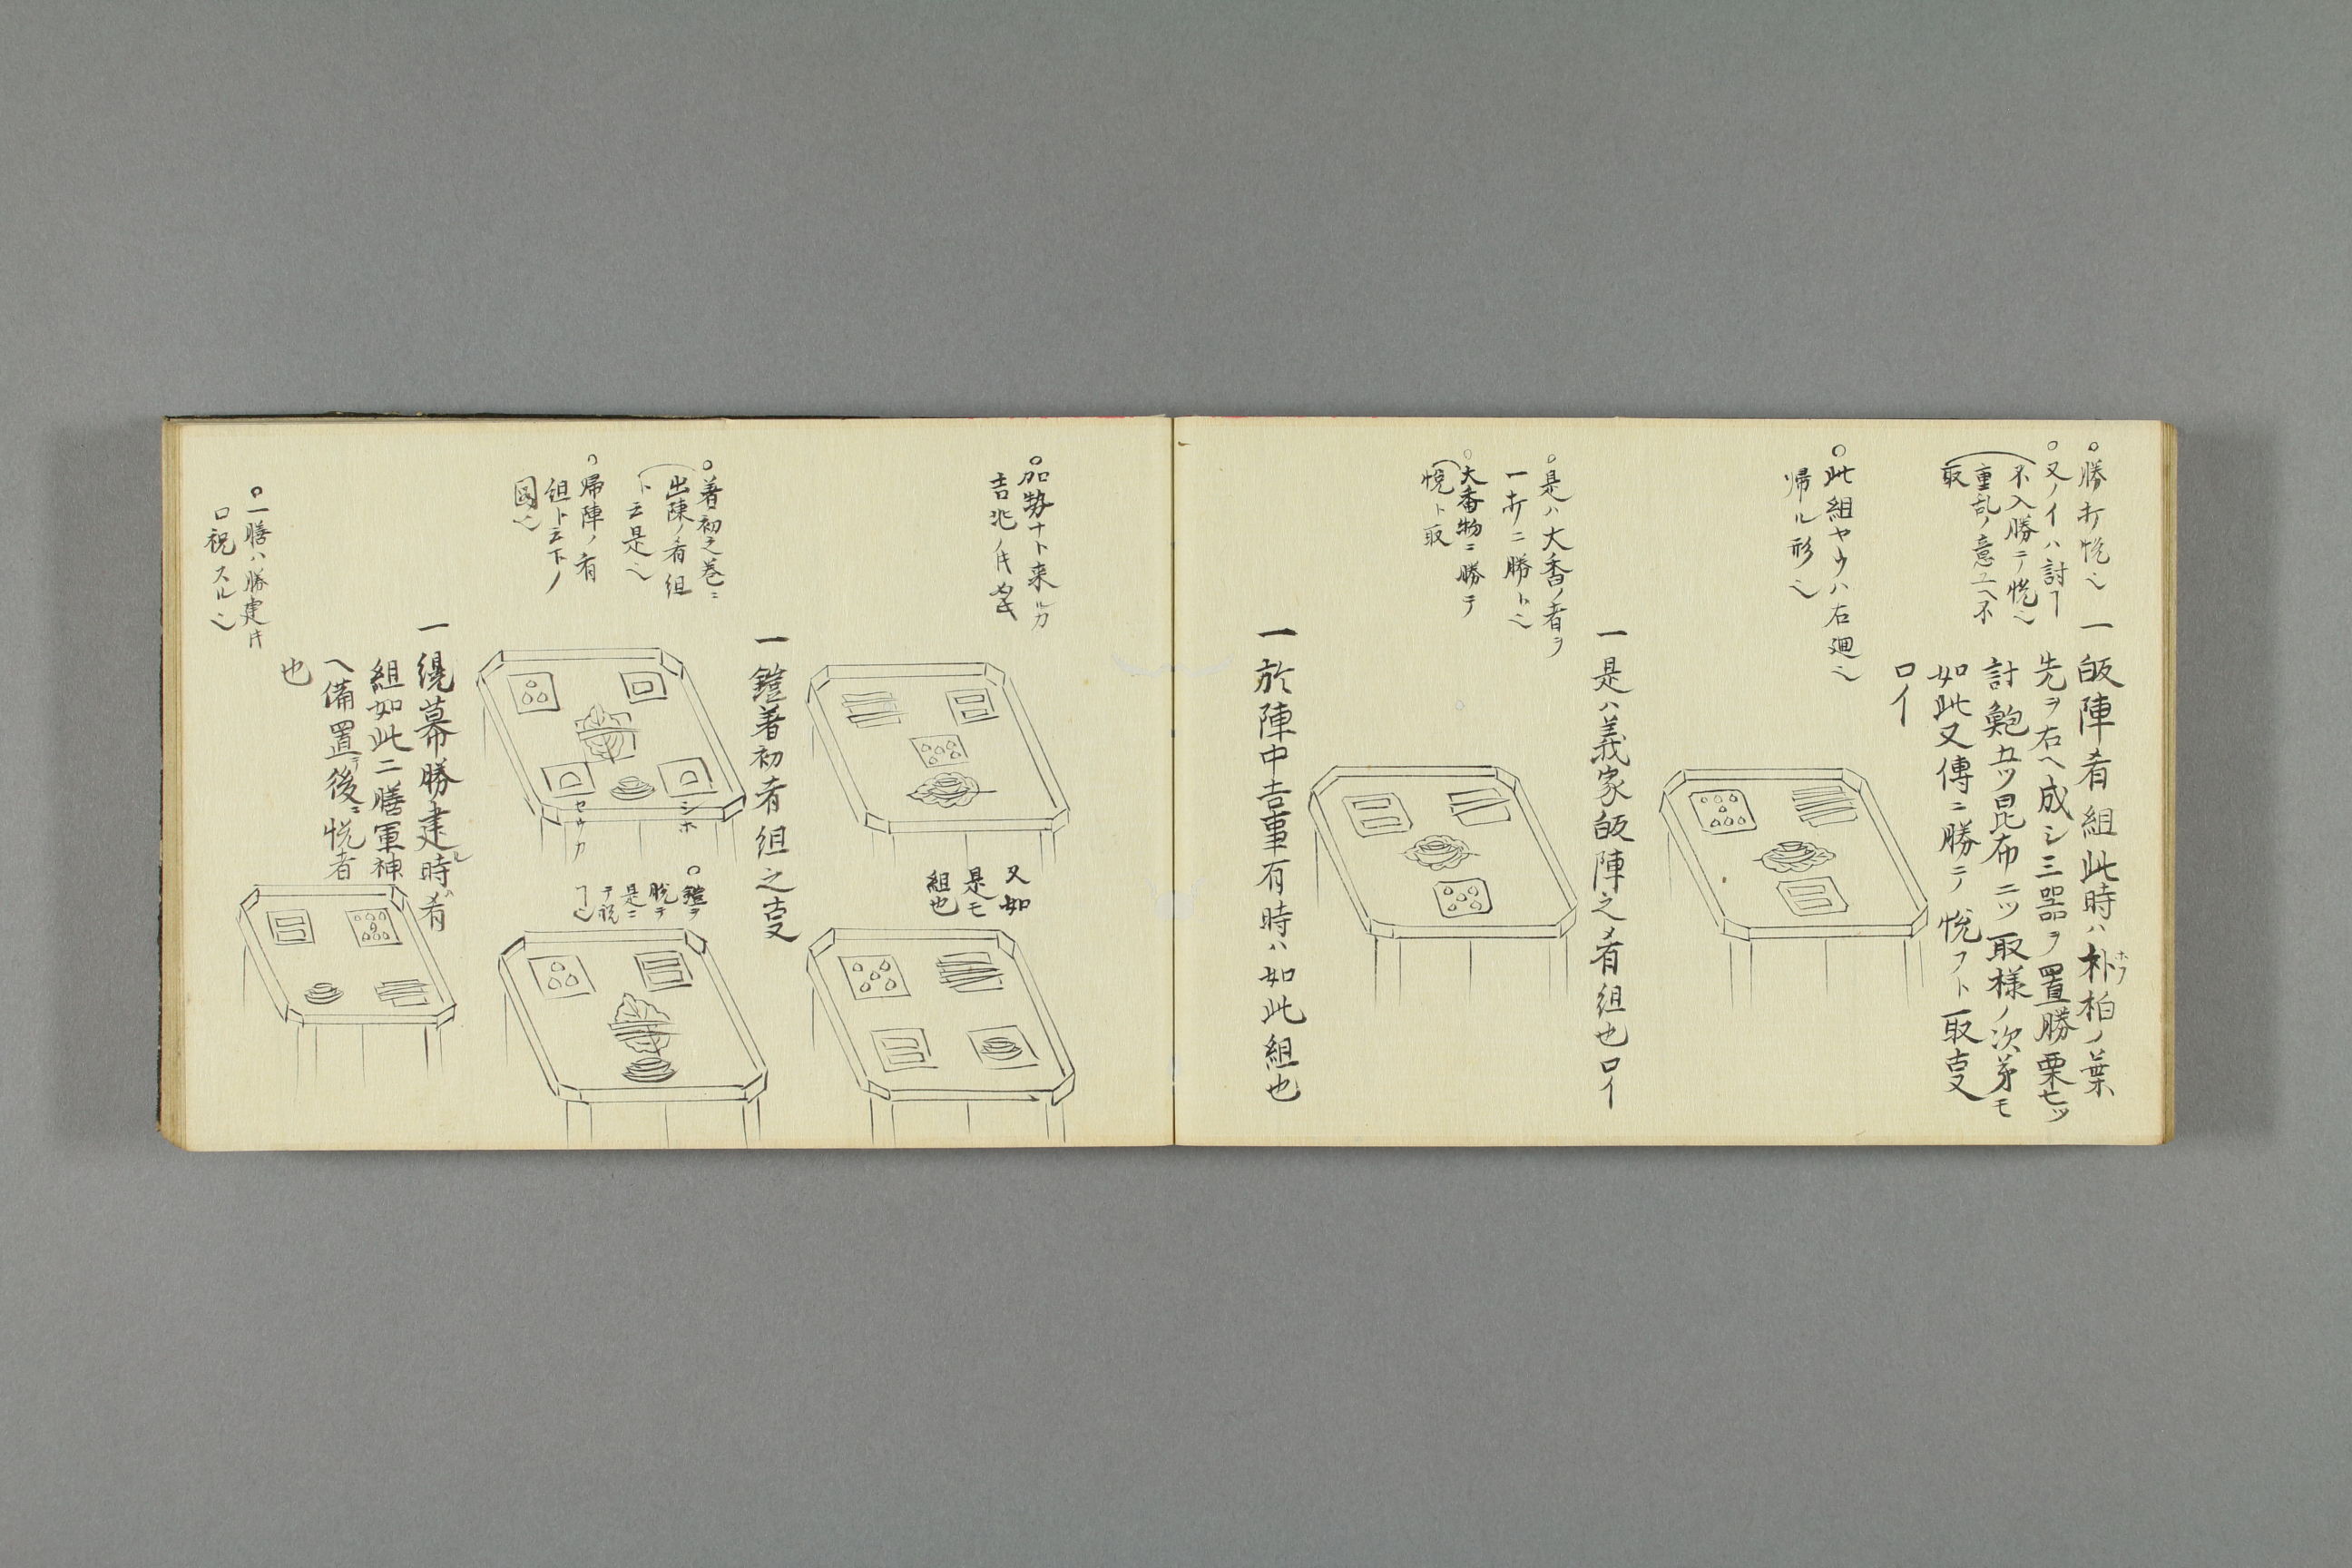 ○勝打悦也
○又ノイハ討ヿ
不入勝テ悦也
重乱ノ意ユヘ不
取
一皈陣肴組此時ハ朴柏ノ葉
ホウ
先ヲ右ヘ成シ三器ヲ置勝栗七ツ
討鮑五ツ昆布二ツ取様ノ次第モ
如此又傳ニ勝テ悦フト取支
口イ
○此組ヤウハ右廻也
帰ル形也
一是ハ義家皈陣之肴組也口イ
○是ハ大香ノ者ヲ
一打ニ勝ト也
○大番物ニ勝テ
悦ト取
一於陣中吉事有時ハ如此組也
○加勢ナト来ルカ
吉兆ノ
又如
是モ
組也
一鎧着初肴組之支
○着初之巻ニ
出陳ノ肴組
ト云是也
○帰陣ノ肴
組ト云下ノ
図也
シホ
セウカ
○鎧ヲ
脱テ
是ニ
テ祝
ヿ也
一繞幕勝建ル時ハ肴
組如此二膳軍神
ヘ備置テ後ニ悦者
也
○一膳ハ勝建
口祝スル也